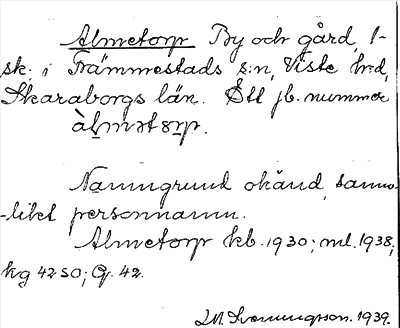 Almetorp By och gård, 1-
sk. i Främmestads s:n, Viste h:d,
Skaraborgs län. Ett jb. nummer
àlmət8rp.
Namngrund okänd, sanno-
-likt personnamn.
Almetorp kb. 1930; ml. 1938;
kg 4250; G. 42.
1939.